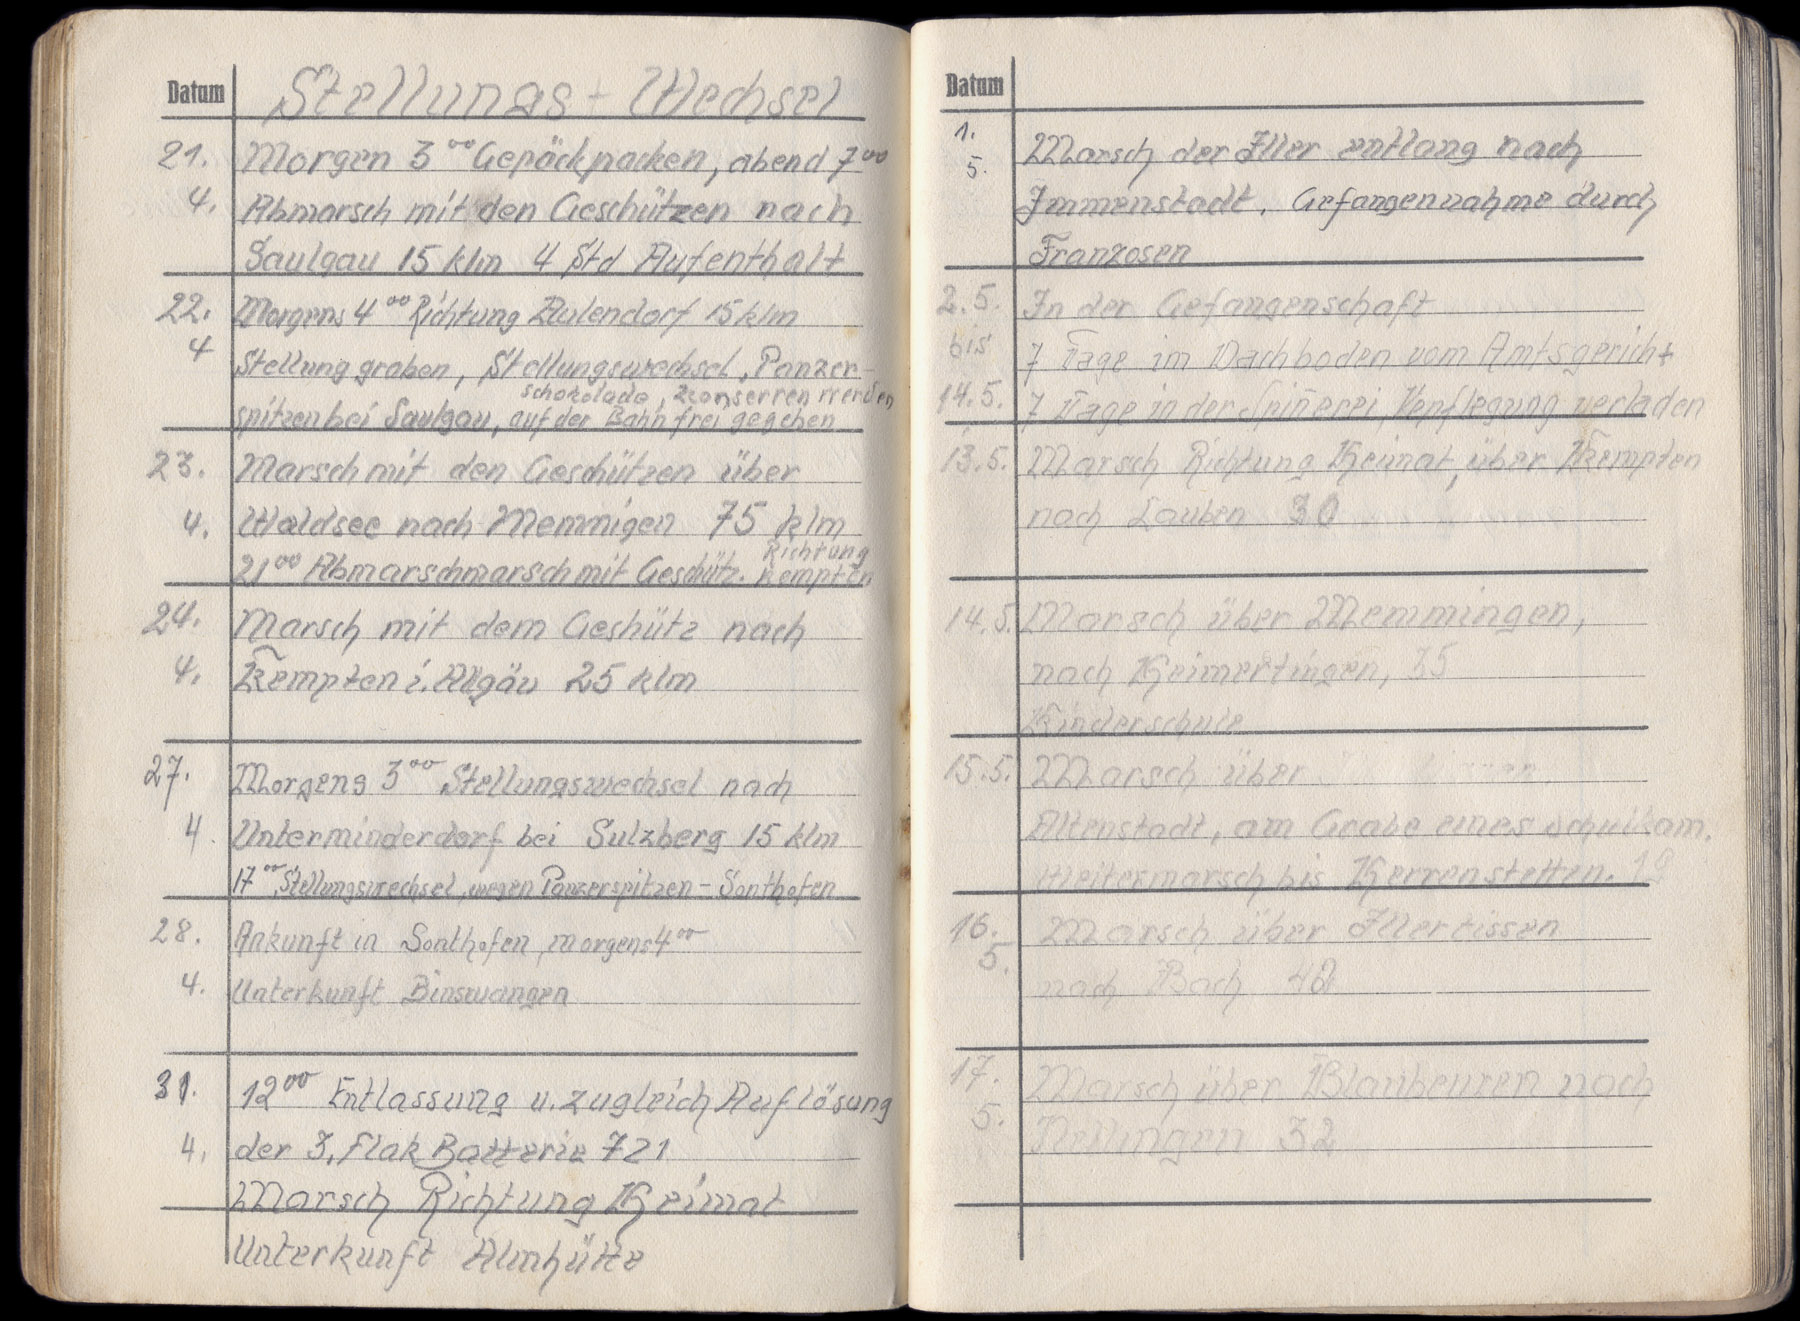 Datum Stellungs - Wechsel
21. Morgen 3⁰⁰ Gepäck packen, abend 7⁰⁰
4. Abmarsch mit den Geschützen nach
Saulgau 15 klm 4 Std Aufenthalt
22. Morgens 4⁰⁰ Richtung Aulendorf 15 klm
4 Stellung graben, Stellungswechsel, Panzer-
schokolade, konserven werden
spitzen bei Saulgau, auf der Bahn frei gegeben
23. Marsch mit den Geschützen über
4. Waldsee nach Memmigen 75 klm
Richtung
21⁰⁰ Abmarschmarsch mit Geschütz. Kempten
24. Marsch mit dem Geshütz nach
4. Kempten i. Algäu 25 klm
27. Morgens 3⁰⁰ Stellungswechsel nach
4. Unterminderdorf bei Sulzberg 15 klm
17⁰⁰ Stellungswechsel, wegen Panzerspitzen - Sonthofen
28. Ankunft in Sonthofen, morgens 4⁰⁰
4. Unterkunft Binswangen
31. 12⁰⁰ Entlassung u. zugleich Auflösung
4. der 3. Flak Batterie 721
Marsch Richtung Heimat
Unterkunft Almhütte
Datum
1. Marsch der Iller entlang nach
5. Immenstadt. Gefangennahme durch
Franzosen
2.5. In der Gefangenschaft
bis 7 Tage im Dachboden vom Amtsgericht
14.5. 7 Tage in der Spin̄erei, Verpflegung verladen
13.5. Marsch Richtung Heimat, über Kempten
nach Lauben 30
14.5. Marsch über Memmingen,
nach Heimertingen, 35
Kinderschule
15.5. Marsch über
Altenstadt, am Grabe eines Schulkam.
Weitermarsch bis Kerrenstetten. 18
16. Marsch über Illertissen
5. nach Bach 40
17. Marsch über Blaubeuren nach
5. Nellingen 32